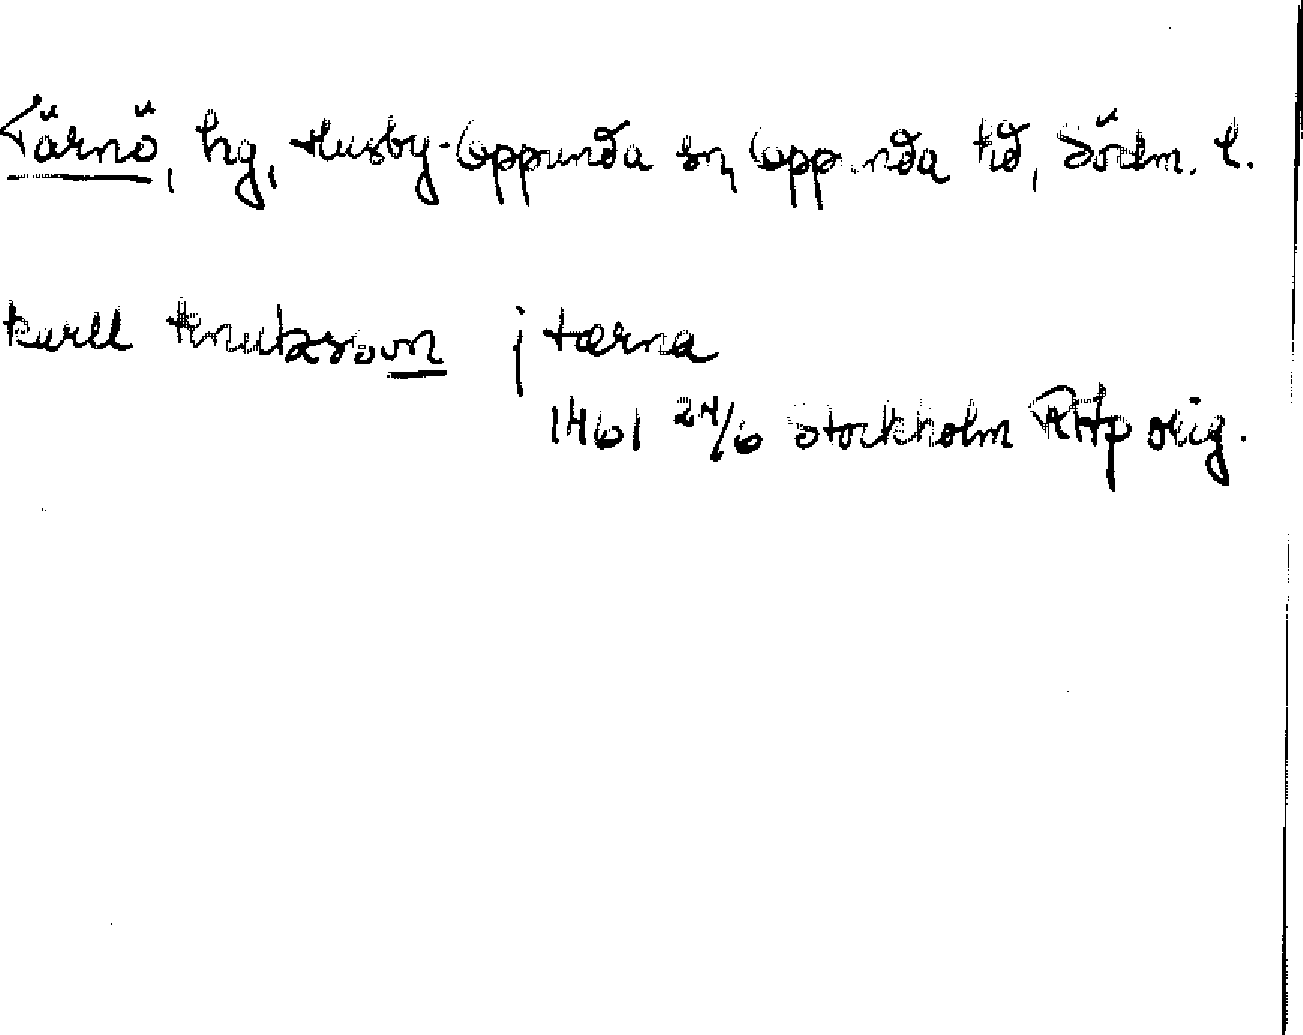 Tärnö, hg, Husby-Oppunda sn, Oppunda hd, Sörm. l.
karll knutzsson j tærna
1461 24/6 Stockholm RHp orig.